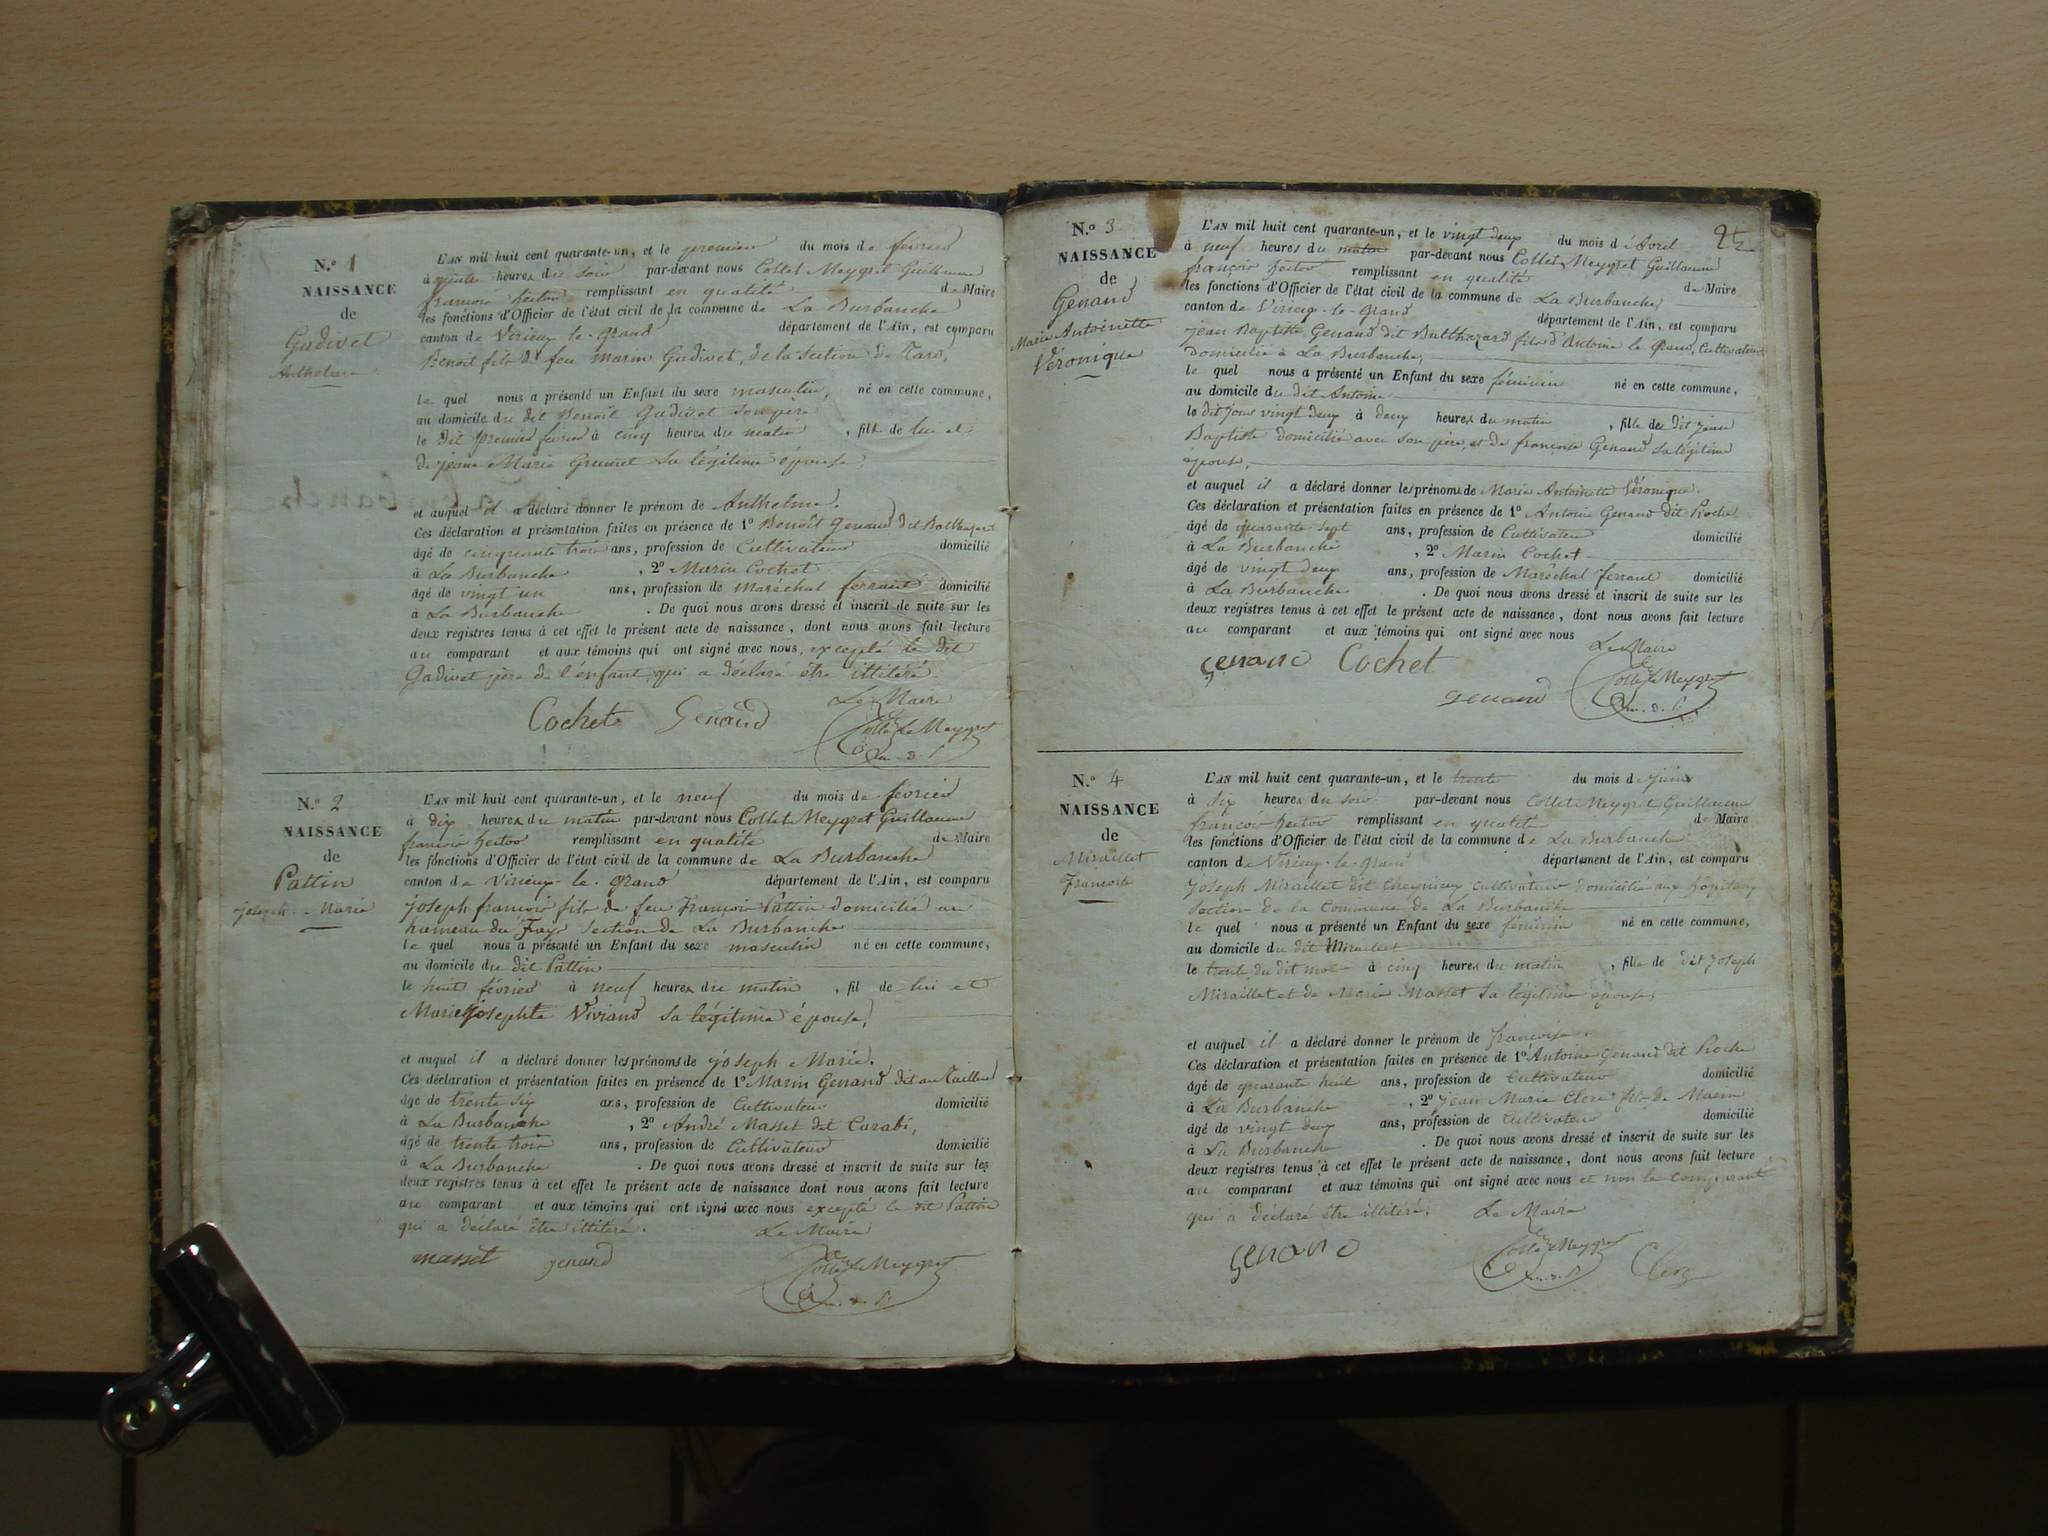 N.º 1
NAISSANCE
de
Gudivet
Anthelme
L'AN mil huit cent quarante-un, et le premier du mois de février
à heures du soir par-devant nous Collet Meygret Guillaume
françois hector remplissant en qualité de Maire
les fonctions d'Officier de l'état civil de la commune de La Burbanche
canton de Virieux le-grand département de l'Ain, est comparu
Benoit fils de feu Marin Gudivet, de la section de
le quel nous a présenté un Enfant du sexe masculin, né en cette commune,
au domicile du dit Benoît Gudivet son père
le dit premier février à cinq heures du matin , fils de lui et
de jeanne Marie Grumet sa légitime épouse,
et auquel il a déclaré donner le prénom de Anthelme.
Ces déclaration et présentation faites en présence de 1º Benoît Genaud dit Balthazard
âgé de cinquante trois ans, profession de Cultivateur domicilié
à La Burbanche , 2º Marin Cochet
âgé de vingt un ans, profession de Maréchal ferrant domicilié
à La Burbanche . De quoi nous avons dressé et inscrit de suite sur les
deux registres tenus à cet effet le présent acte de naissance, dont nous avons fait lecture
au comparant et aux témoins qui ont signé avec nous, excepté le dit
Gudivet père de l'enfant, qui a déclaré être illitéré.
Le Maire
Cochet Genaud Collet Meygret
N.º 2
NAISSANCE
de
Pattin
joseph Marie
L'AN mil huit cent quarante-un, et le neuf du mois de février
à dix heures du matin par-devant nous Collet Meygret Guillaume
françois hector remplissant en qualité de Maire
les fonctions d'Officier de l'état civil de la commune de La Burbanche
canton de Virieux-le-grand département de l'Ain, est comparu
joseph françois fils de feu François Pattin domicilié au
hameau du section de La Burbanche
le quel nous a présenté un Enfant du sexe masculin né en cette commune,
au domicile du dit Pattin
le huit février à neuf heures du matin , fils de lui et
Marie josephte Viviand sa légitime épouse,
et auquel il a déclaré donner les prénoms de joseph Marie.
Ces déclaration et présentation faites en présence de 1º Marin Genaud dit au Tailleur
âgé de trente six ans, profession de Cultivateur domicilié
à La Burbanche , 2º André Masset dit Carabi,
âgé de trente trois ans, profession de Cultivateur domicilié
à La Burbanche . De quoi nous avons dressé et inscrit de suite sur les
deux registres tenus à cet effet le présent acte de naissance dont nous avons fait lecture
au comparant et aux témoins qui ont signé avec nous excepté le dit Pattin
qui a déclaré être illitéré. Le Maire
masset genaud Collet Meygret
N.º 3
NAISSANCE
de
Genaud
Marie Antoinette
Véronique
L'AN mil huit cent quarante-un, et le vingt deux du mois d'Avril
à neuf heures du matin par-devant nous Collet Meygret Guillaume
françois hector remplissant en qualité de Maire
les fonctions d'Officier de l'état civil de la commune de La Burbanche
canton de Virieux-le-grand département de l'Ain, est comparu
jean Baptiste Genaud dit Balthazard fils d'Antoine le Grand, Cultivateur
domicilié à La Burbanche,
le quel nous a présenté un Enfant du sexe féminin né en cette commune,
au domicile du dit Antoine
le dit jour vingt deux à deux heures du matin , fille de dit jean
Baptiste domicilié avec son père, et de françoise Genaud sa légitime
épouse,
et auquel il a déclaré donner les prénoms de Marie Antoinette Véronique.
Ces déclaration et présentation faites en présence de 1º Antoine Genaud dit Roche
âgé de quarante sept ans, profession de Cultivateur domicilié
à La Burbanche , 2º Marin Cochet
âgé de vingt deux ans, profession de Maréchal ferrant domicilié
à La Burbanche . De quoi nous avons dressé et inscrit de suite sur les
deux registres tenus à cet effet le présent acte de naissance, dont nous avons fait lecture
au comparant et aux témoins qui ont signé avec nous
Le Maire
genand Cochet
genaud Collet Meygret
N.º 4
NAISSANCE
de
Miraillet
Françoise
L'AN mil huit cent quarante-un, et le trente du mois de juin
à six heures du soir par-devant nous Collet Meygret Guillaume
françois hector remplissant en qualité de Maire
les fonctions d'Officier de l'état civil de la commune de La Burbanche
canton de Virieux-le-grand département de l'Ain, est comparu
joseph Miraillet dit cultivateur domicilié aux hôpitaux
section de la Commune de La Burbanche
le quel nous a présenté un Enfant du sexe féminin né en cette commune,
au domicile du dit Miraillet
le trente du dit mois à cinq heures du matin , fille de dit joseph
Miraillet et de Marie Masset sa légitime épouse,
et auquel il a déclaré donner le prénom de françoise.
Ces déclaration et présentation faites en présence de 1º Antoine Genaud dit Roche
âgé de quarante huit ans, profession de Cultivateur domicilié
à La Burbanche , 2º jean Marie Clerc fils de Marin
âgé de vingt deux ans, profession de cultivateur domicilié
à La Burbanche . De quoi nous avons dressé et inscrit de suite sur les
deux registres tenus à cet effet le présent acte de naissance, dont nous avons fait lecture
au comparant et aux témoins qui ont signé avec nous et non le comparant
qui a déclaré être illitéré. Le Maire
genand Collet Meygret Clerc